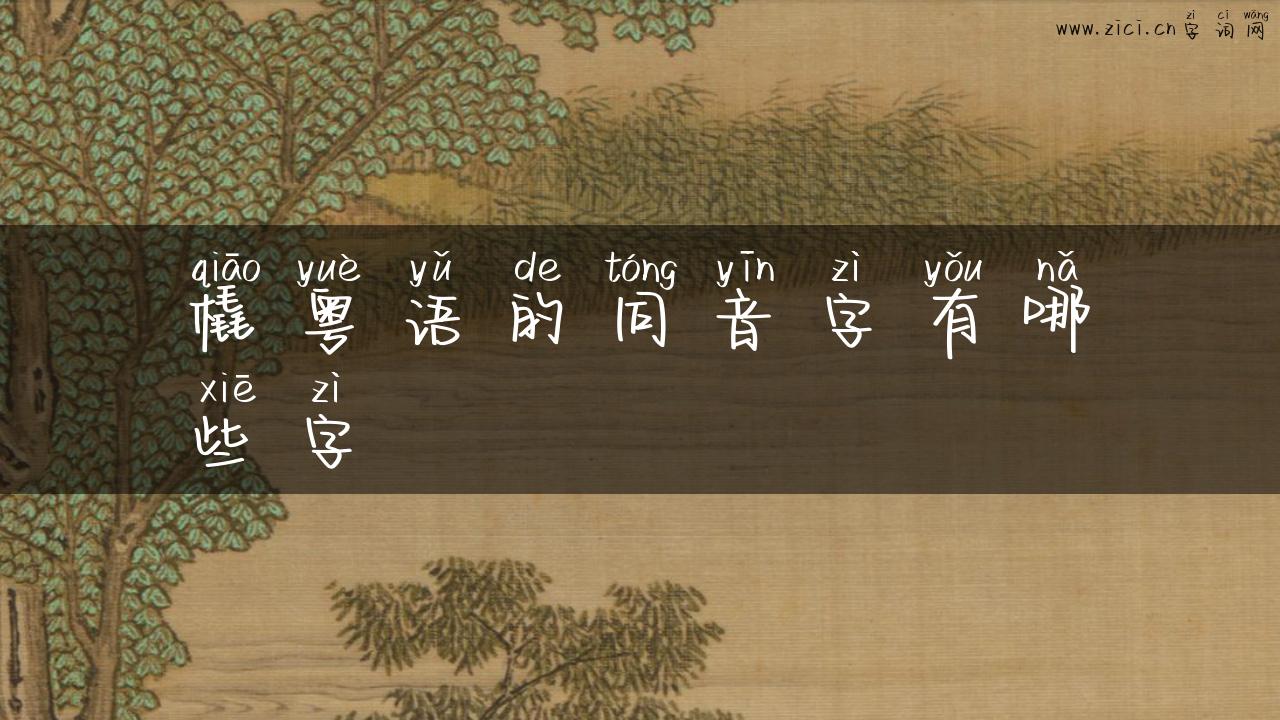 zì cí wǎng
www.zici.cn字词网
qiāo yuè yǔ de tóng yīn zì yǒu nǎ
橇粤语的同音字有哪
xiē zì
些字